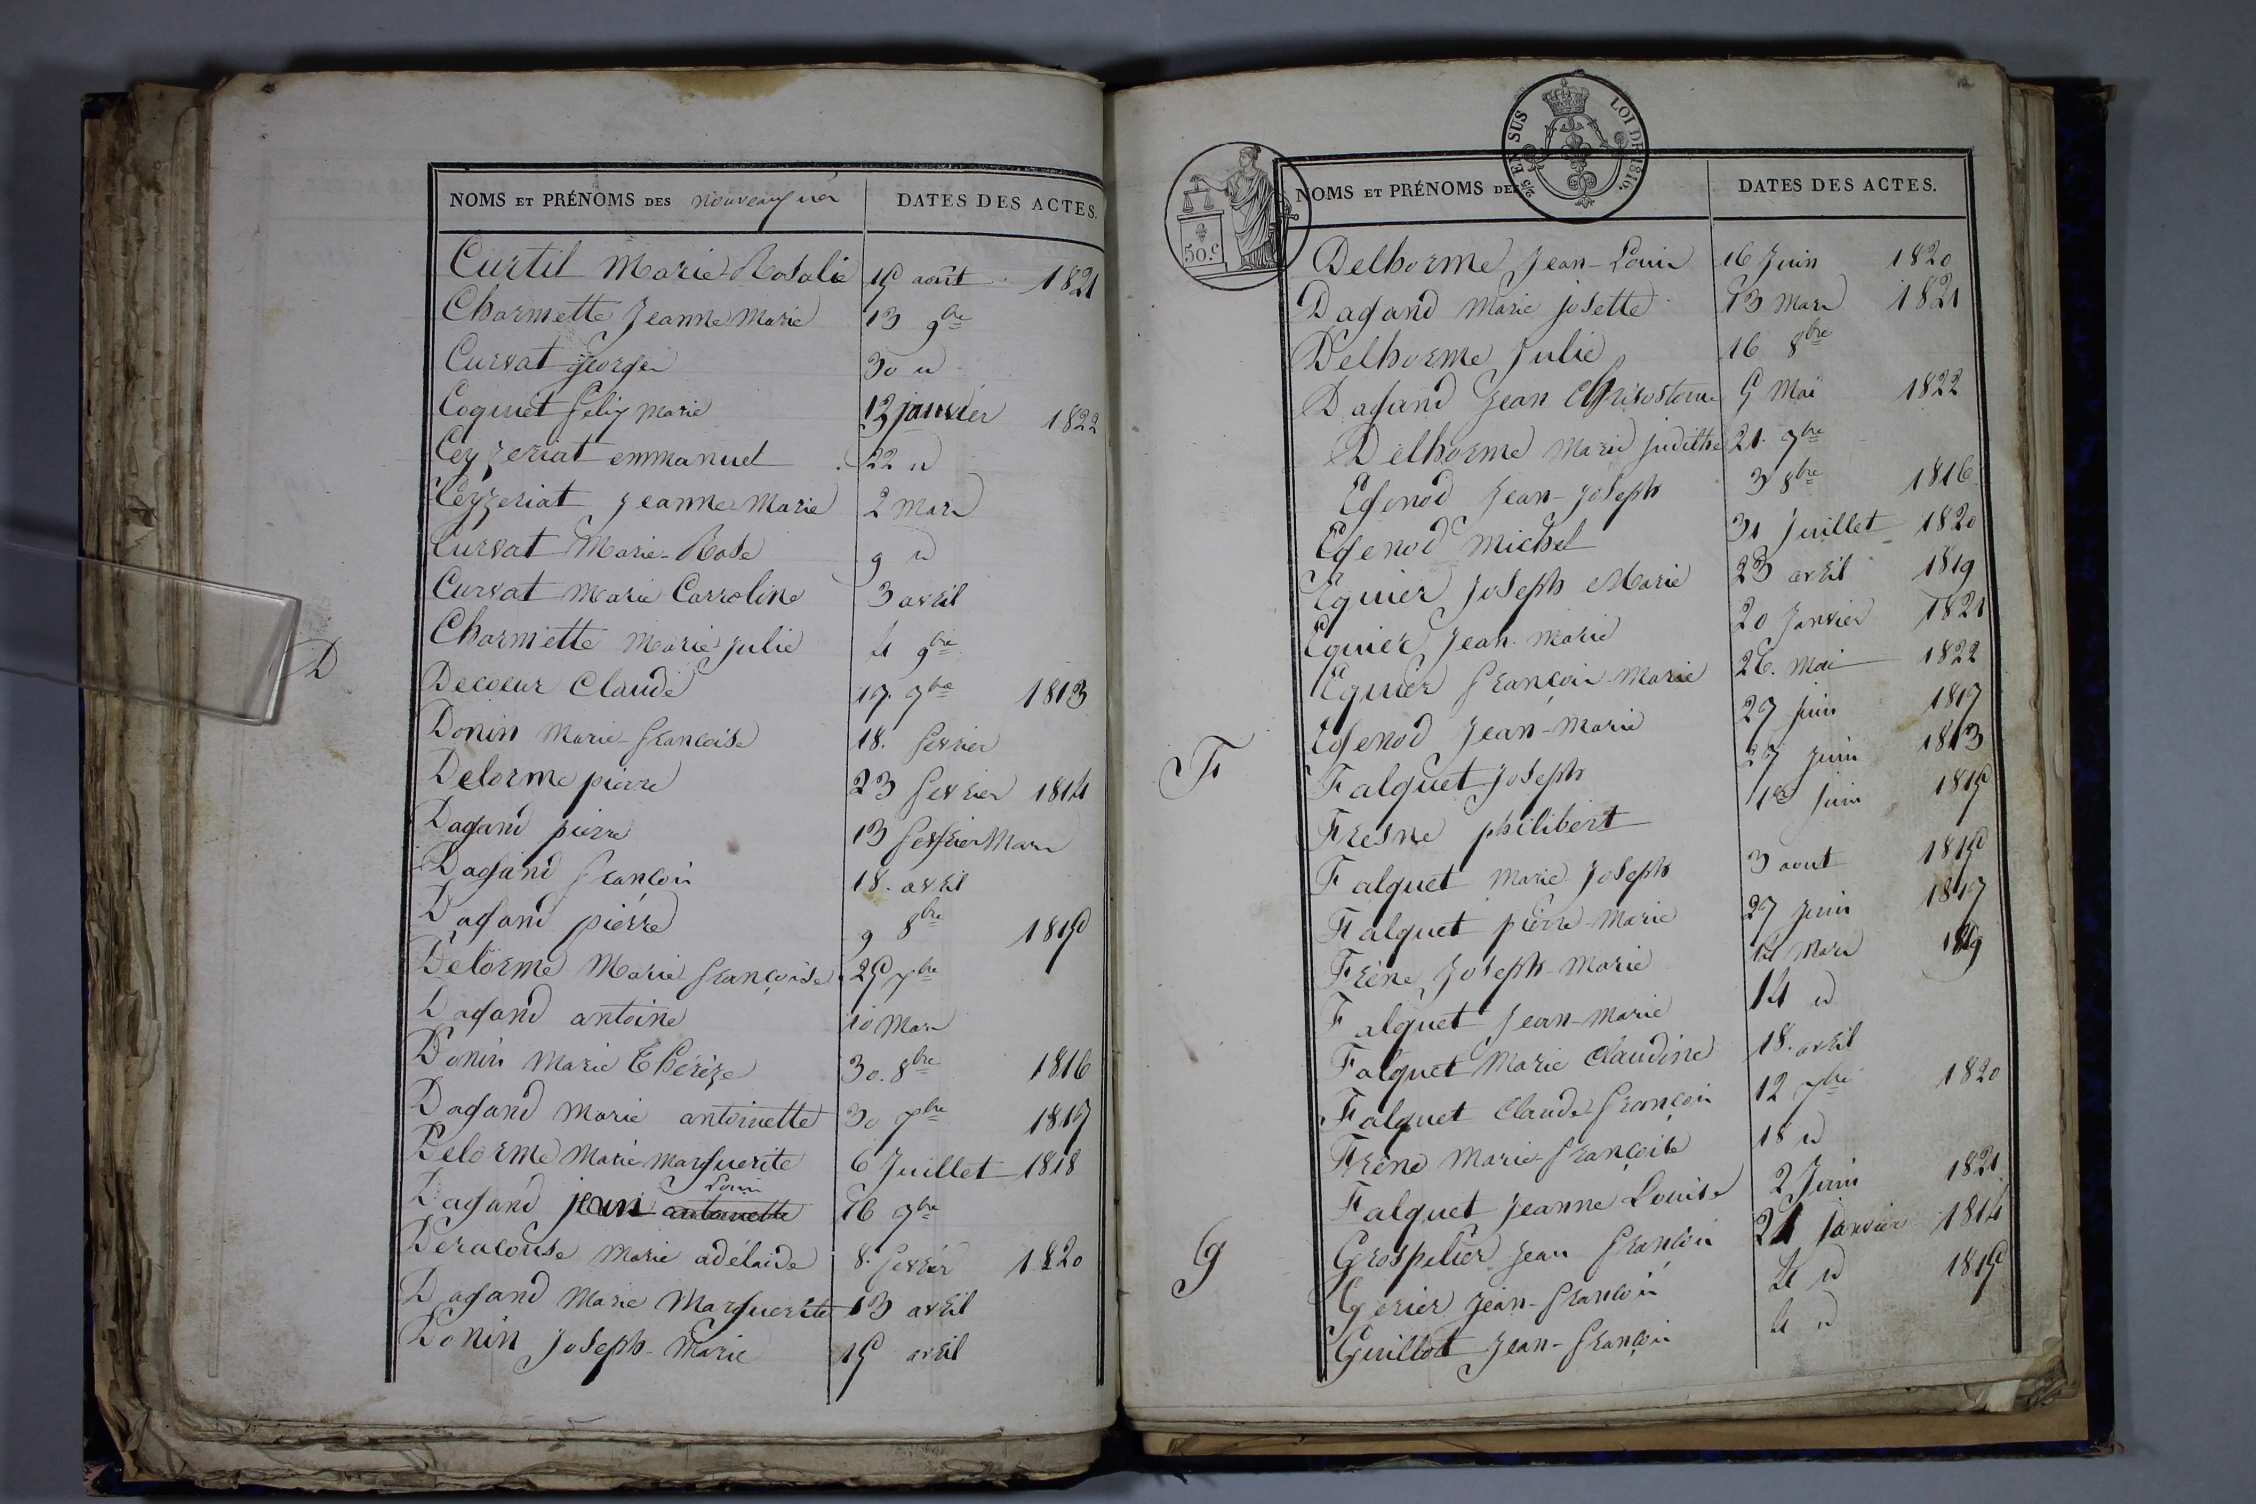 NOMS ET PRÉNOMS DES nouveaux nés DATES DES ACTES.
Curtil Marie Rosalie 15 août 1821
Charmette Jeanne Marie 13 9bre
Curvat george 30 id
Coquet felix marie 12 janvier 1822
Ceyzeriat emmanuel 22 id
Ceyzeriat Jeanne Marie 2 Mars
Curvat Marie-Rose 9 id
Curvat Marie Carroline 3 avril
Charmette Marie Julie 4 9bre
D
Decoeur Claude 17. 7bre 1813
Donin Marie françoise 18. fevrier
Delorme pierre 23 fevrier 1814
Dagand pierre 13 Mars
Dagand françois 18. avril
Dagand pierre 9 8bre 1815
Delorme Marie françoise 25 7bre
Dagand antoine 10 Mars
Donin Marie Thérèze 30. 8bre 1816
Dagand Marie antoinette 30 7bre 1817
Delorme Marie Marguerite 6 Juillet 1818
Dagand jean Louis antoinette 16 9bre
Deracouse Marie adélaide 8. fevrier 1820
Dagand Marie Marguerite 13 avril
Donin Joseph-Marie 15 avril
2/5 EN SUS LOI DE 1816.
50.c
NOMS ET PRÉNOMS DES DATES DES ACTES.
Delhorme Jean-Louis 16 Juin 1820
Dagand Marie josette 13 Mars 1821
Delhorme Julie 16 8bre
Dagand Jean Chrisostome 5 Mai 1822
Delhorme Marie judithe 21. 9bre
Egenod Jean-Joseph 3 8bre 1816
Egenod Michel 31 Juillet 1820
Eguier Joseph Marie 23 avril 1819
Eguier Jean-Marie 20 Janvier 1821
Eguier françois-Marie 26. Mai 1822
Egenod Jean-Marie 27 juin 1817
F
Falquet Joseph 27 juin 1813
Fresne philibert 1er juin 1815
Falquet Marie Joseph 3 aout 1815
Falquet pierre-Marie 27 juin 1817
Frène Joseph-Marie Mars 1819
Falquet Jean-Marie 14 id
Falquet Marie Claudine 18. avril
Falquet Claude françois 12 7bre 1820
Frène Marie françoise 18 id
Falquet Jeanne Louise 2 Juin 1821
G
Grospelier Jean françois 21 Janvier 1814
Gerier Jean-françois 4 id 1815
Guillot Jean-françois 4 id